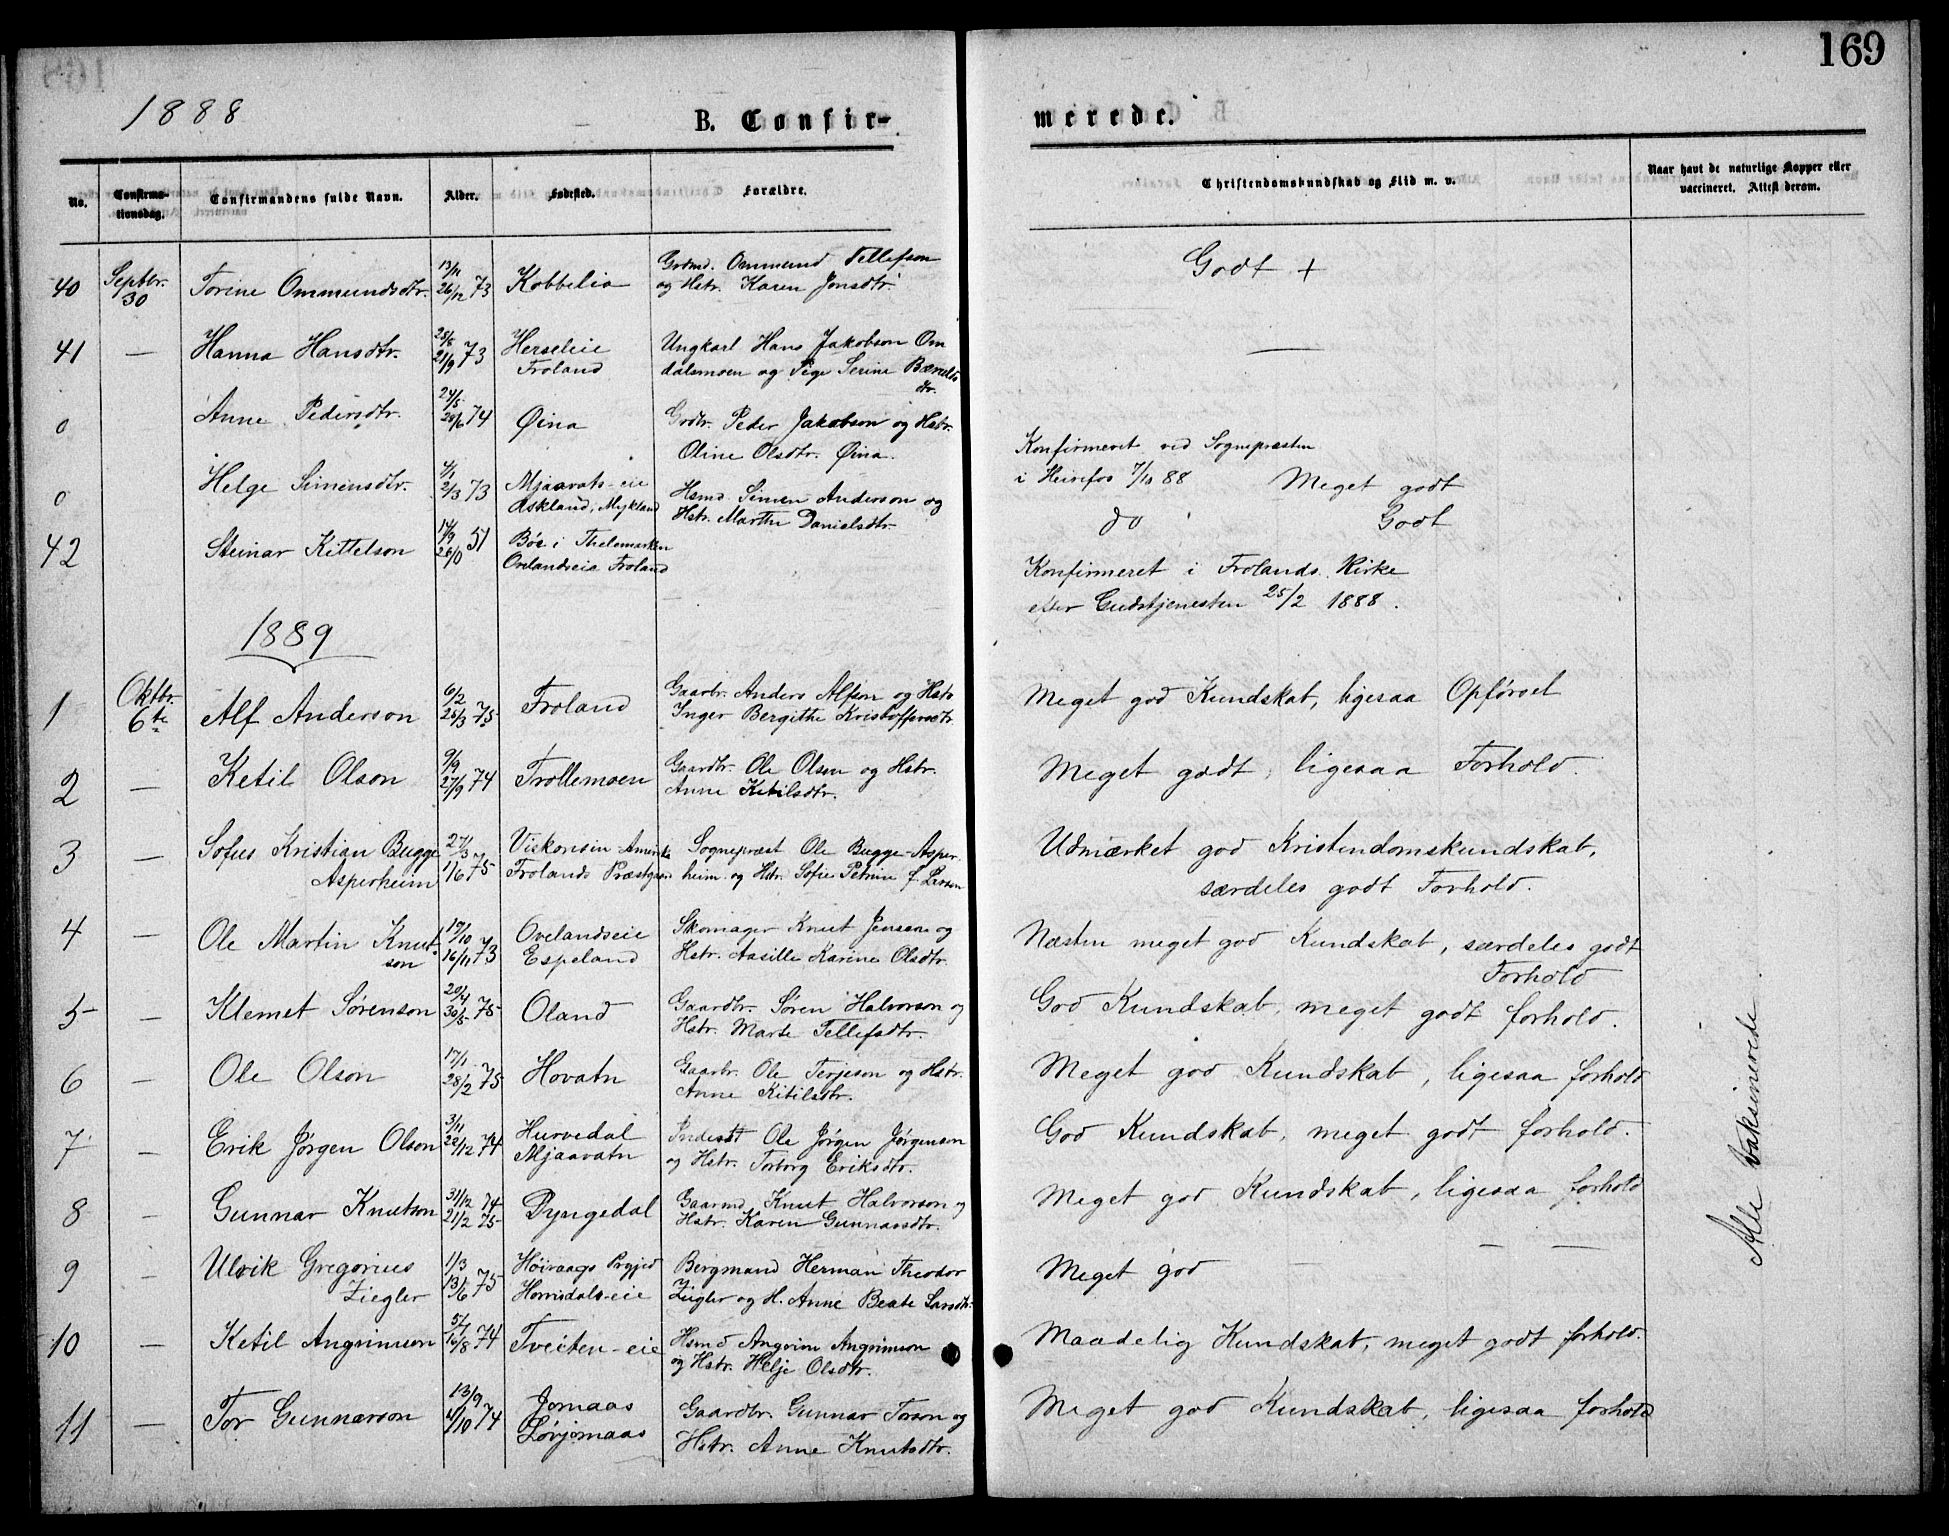 169
1888
B. Confir-
merede.
No.
Confirma-
tionsdag.
Confirmandens fulde Navn.
Alder.
Fødested.
Forældre.
Christendomskundskab og Flid m. v.
Naar havt de naturlige Kopper eller
vaccineret. Attest derom.
40
Septbr.
30
Torine Ommundsdtr.
13/11
26/12 73
Kobbelia
Grdmd. Ommund Tellefson
og Hstr. Karen Jonsdtr.
Godt +
41
—
Hanna Hansdtr.
28/8
21/9 73
Herseleie
Froland
Ungkarl Hans Jakobson Om
dalsmoen og Pige Serine
dtr.
—
0
Anne Pedersdtr.
24/5
28/6 74
Øina
Grdbr. Peder Jakobson og Hstr.
Oline Olsdtr. Øina.
Konfirmeret ved Sognepræsten
i Heirefos 7/10 88 Meget godt
0
Helge Simensdtr.
4/1
2/3 73
Mjaavats-eie
Askland, Mykland
Hsmd. Simen Anderson og
Hstr. Marthe Danielsdtr.
do Godt
42
Steinar Kittelson
14/9
51
Böe i Thelemarken
Ovelandseie Froland
Konfirmeret i Frolands Kirke
efter Gudstjenesten 25/2 1888.
1889
1
Oktbr.
6te
Alf Anderson
6/2
25/3 75
Froland
Gaarbr. Anders Alfson og Hstr
Inger Bergithe Kristoffersdtr
Meget god Kundskab, ligesaa Opførsel
2
—
Ketil Olson
9/9
27/9 74
Trollemoen
Gaardbr. Ole Olsen og Hstr.
Anne Ketilsdtr.
Meget godt, ligesaa Forhold.
3
—
Sofus Kristian Bugge
Asperheim
27/3
1/6 75
Viskonsin Amerika
Frolands Præstgaard
Sognepræst Ole Bugge-Asper
heim og Hstr. Sofie Petrine f. Larsen
Udmærket god Kristendomskundskab,
særdeles godt Forhold.
4
—
Ole Martin Knut
son
17/10
16/11 73
Ovelandseie
Espeland
Skomager Knut Jensen og
Hstr. Aasille Karine Olsdtr.
Næsten meget god Kundskab, særdeles godt
Forhold
5
—
Klemet Sørenson
20/4
30/5 75
Oland
Gaardbr. Søren Halvorson og
Hstr. Marte Tellefsdtr.
God Kundskab, meget godt forhold.
6
—
Ole Olson
17/1
28/2 75
Hovatn
Gaarbr. Ole Terjeson og Hstr.
Anne Kitilsdtr.
Meget god Kundskab, ligesaa forhold
7
—
Erik Jørgen Olson
3/11
22/12 74
Hurvedal
Mjaavatn
Inderst Ole Jørgen Jørgenson
og Hstr. Torborg Eriksdtr.
God Kundskab, meget godt forhold.
8
—
Gunnar Knutson
31/12 74
21/2 75
Dyngedal
Gaarmd Knut Halvorson og
Hstr. Karen Gunnarsdtr.
Meget god Kundskab, ligesaa forhold
9
—
Ulrik Gregorius
Ziegler
1/3
13/6 75
Höivaags Prgjed
Homdals-eie
Bergmand Herman Theodor
Ziegler og H. Anne Beate Larsdtr.
Meget god — —
10
—
Ketil Angrimson
5/7
16/8 74
Tveiten-eie
Hsmd Angrim Angrimson
og Hstr. Helje Olsdtr.
Maadelig Kundskab, meget godt forhold.
11
—
Tor Gunnarson
13/9
4/10 74
Jomaas
Løvjomaas
Gaardbr. Gunnar Torson og
Hstr. Anne Knutsdtr.
Meget god Kundskab, ligesaa forhold
Alle vaksinerede